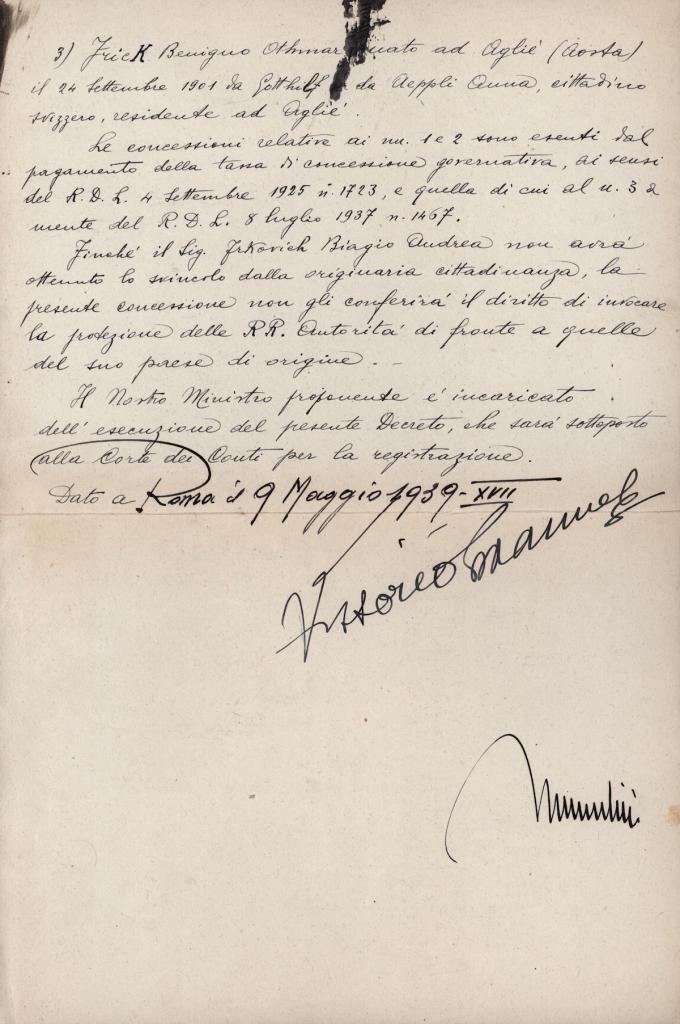 3) Frick Benigno Othmar nato ad Agliè (Aosta)
il 24 Settembre 1901 da Gotthilf e da Aeppli Anna, cittadino
svizzero, residente ad Agliè.
Le concessioni relative ai nn. 1 e 2 sono esenti dal
pagamento della tassa di concessione governativa, ai sensi
del R.D.L. 4 Settembre 1925 n. 1723, e quella di cui al n. 3 a
mente del R.D.L. 8 luglio 1937 n. 1467.
Finché il Sig. Irkovich Biagio Andrea non avrà
ottenuto lo svincolo dalla originaria cittadinanza, la
presente concessione non gli conferirà il diritto di invocare
la protezione delle RR. Autorità di fronte a quelle
del suo paese di origine. -
Il Nostro Ministro proponente è incaricato
dell'esecuzione del presente Decreto, che sarà sottoposto
alla Corte dei Conti per la registrazione.
Dato a Roma il 9 Maggio 1939-XVII
Vittorio Emanuele
Mussolini